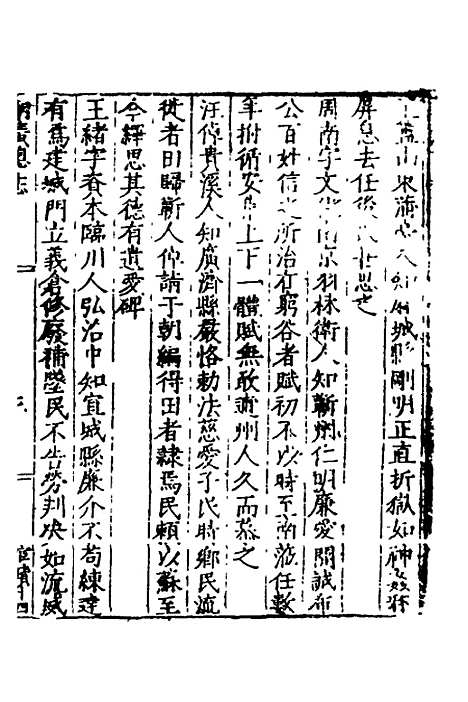 山東蒲人知城縣剛明正直折獄如神
屏息去任後民思之
周南字文南京羽林衛人知蘄州仁明廉愛開誠布
公百姓信之所治有窮谷者賦初不以時至南蒞任數
年拊循安上下一體賦無敢逋州人久而慕之
汪倬貴溪人知廣濟縣嚴恪勅法慈愛子民時鄉民流
徙者日歸蘄人倬請于朝編得田者隸焉民賴以蘇至
今繹思其德有遺愛碑
王緒字本臨川人弘治中知宜城縣廉介不苟練達
有為建城門立義倉修廢補墜民不告勞判决如流威
湖廣總志